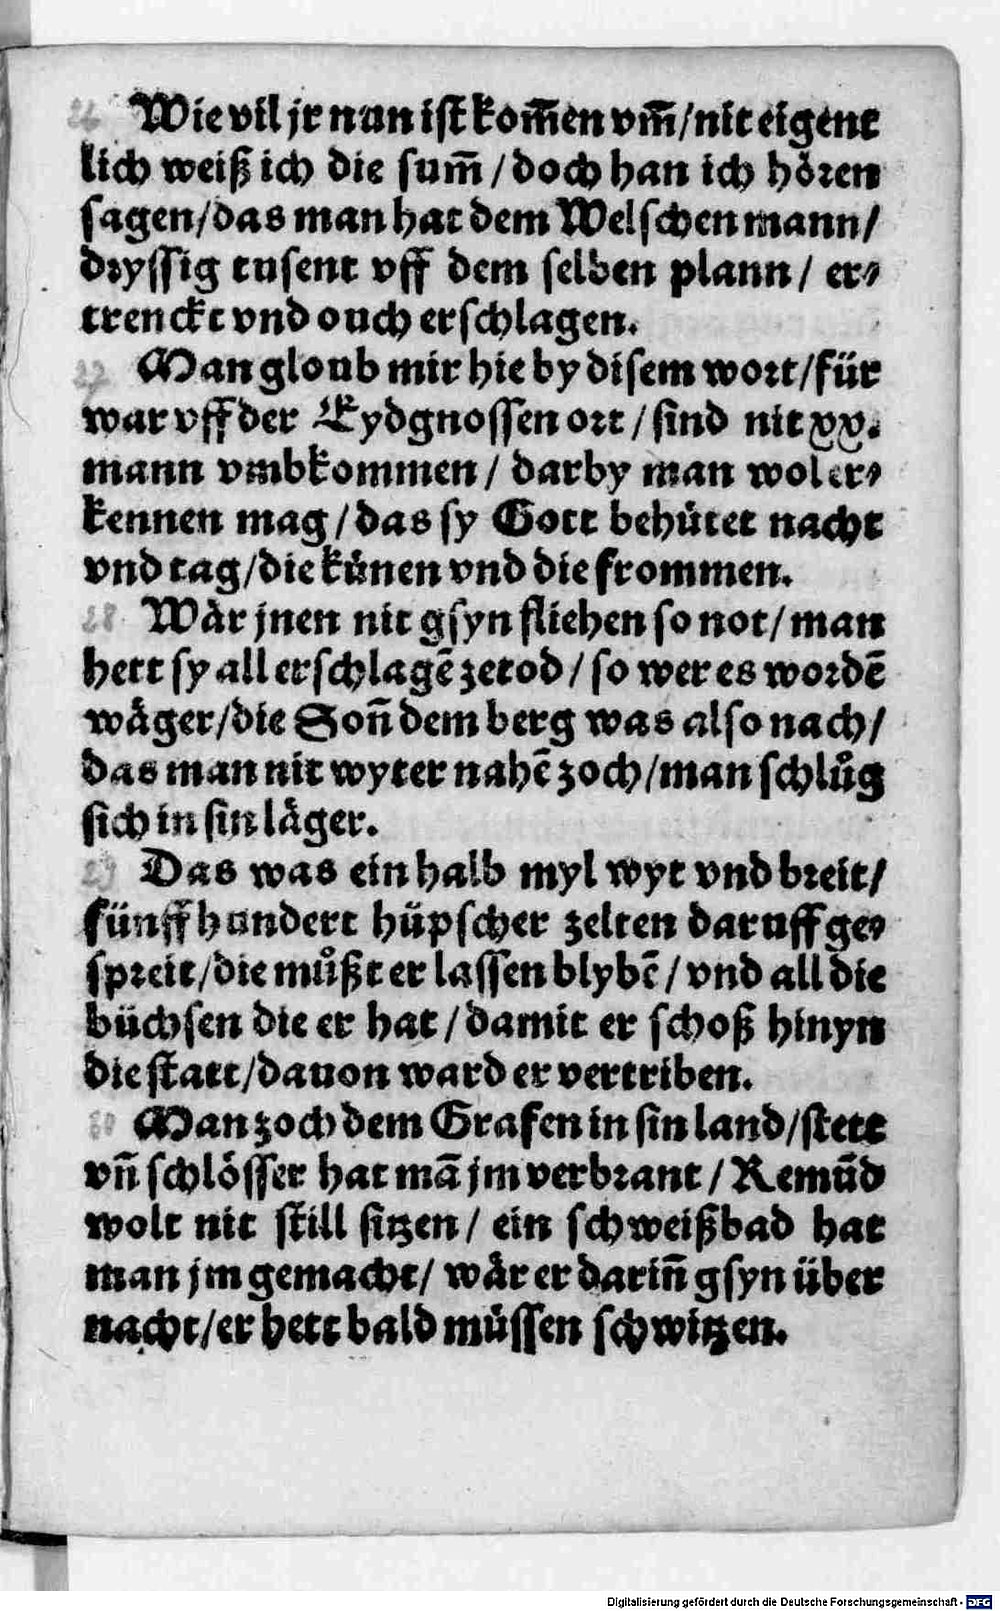 26 Wie vil jr nun ist kom̃en vm̃/nit eigent
lich weiß ich die sum̃/doch han ich hören
sagen/das man hat dem Welschen mann/
dryssig tusent vff dem selben plann/ er⸗
trenckt vnd ouch erschlagen.
27 Man gloub mir hie by disem wort/für
war vff der Eydgnossen ort/sind nit xx.
mann vmbkommen/ darby man wol er⸗
kennen mag/das sy Gott behütet nacht
vnd tag/die künen vnd die frommen.
28 Wår jnen nit gsyn fliehen so not/man
hett sy all erschlagē zetod/so wer es wordē
wåger/die Soñ dem berg was also nach/
das man nit wyter nahē zoch/man schlůg
sich in sin låger.
29 Das was ein halb myl wyt vnd breit/
fünff hundert hüpscher zelten daruff ge⸗
spreit/die můßt er lassen blybē/vnd all die
büchsen die er hat/damit er schoß hinyn
die statt/dauon ward er vertriben.
30 Man zoch dem Grafen in sin land/stett
vñ schlösser hat mā jm verbrant/Remūd
wolt nit still sitzen/ ein schweißbad hat
man jm gemacht/ wår er dariñ gsyn über
nacht/er hett bald müssen schwitzen.
Digitalisierung gefördert durch die Deutsche Forschungsgemeinschaft - DFG